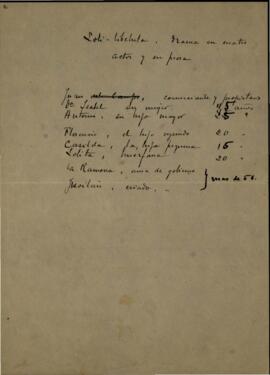 Loli-libélula. Drama en cuatro
actos y en prosa
Juan, comerciante y propietario
Dª Isabel su mujer 45 años
Antonio, su hijo mayor 25 "
el hijo segundo 20 "
Casilda, la hija pequeña 16 "
Lolita, huérfana 20 "
La Ramona, ama de gobierno
criado. } mas de 50.